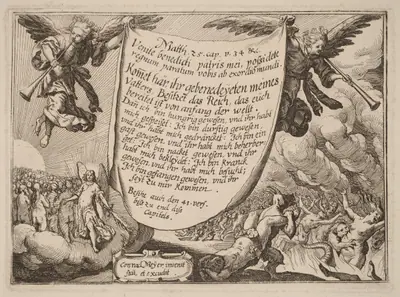 Matth. 25. cap. v. 34 &c.
Venite benedicti patris mei, possidete
regnum paratum vobis ab exordio mundi.
Kom̄et har ihr gebenedeyeten meines
Vatters. Besitzet das Reich, das euch
bereitet ist von anfang der welt.
Dan̄ ich bin hungrig gewesen, und ihr habt
mich gespeiset. Ich bin durstig gewesen,
und ihr habt mich gedräncket. Ich bin ein
gast gewesen, und ihr habt mich beherber
get. Ich bin nacket gewesen, und ihr
habt mich bekleidet. Ich bin Kranck
gewesen, und ihr habt mich besucht.
Ich bin gefangen gewesen, und ihr
seyt zu mir Kommen.
Besihe auch den 41. vers.
biß zu end diß
Capitels.
Conrad Meyer invenit
fecit, et excudit